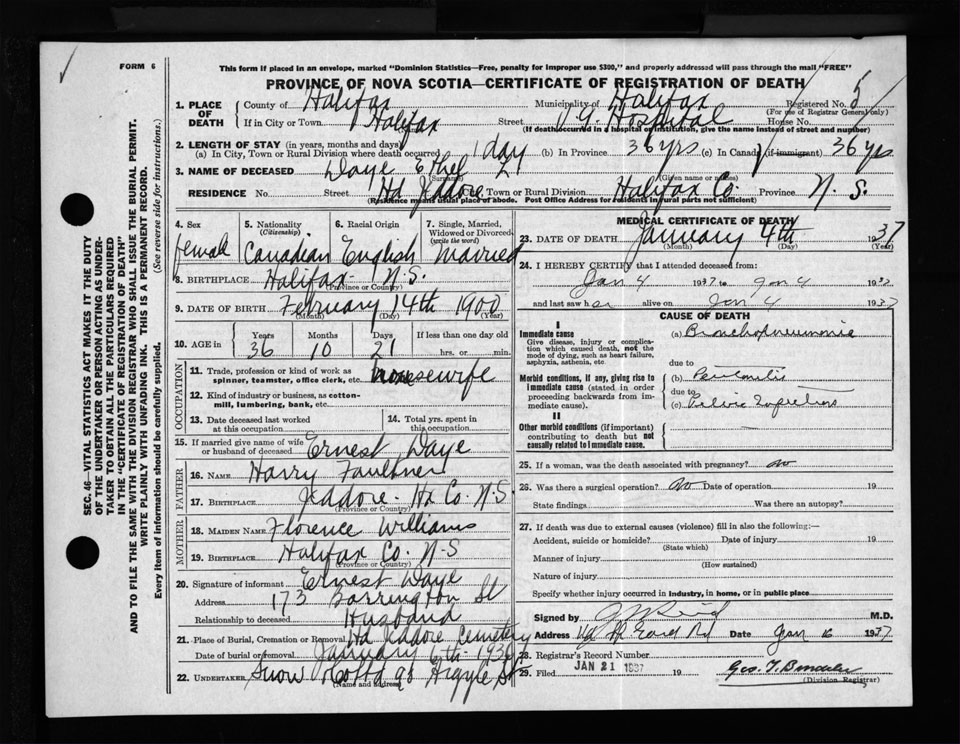 FORM 6
This form if placed in an envelope, marked "Dominion Statistics—Free, penalty for improper use $300," and properly addressed will pass through the mail "FREE"
PROVINCE OF NOVA SCOTIA—CERTIFICATE OF REGISTRATION OF DEATH
1. PLACE OF DEATH
County of Halifax Municipality of Halifax Registered No. 5
(For use of Registrar General only)
If in City or Town Halifax Street V.G. Hospital House No.
(If death occurred in a hospital or institution, give the name instead of street and number)
2. LENGTH OF STAY (in years, months and days)
(a) In City, Town or Rural Division where death occurred 1 day (b) In Province 36 yrs (c) In Canada (if immigrant) 36 yrs
3. NAME OF DECEASED Daye Ethel
(Surname) (Given name or names)
RESIDENCE No. Street Hd Jeddore City, Town or Rural Division Halifax Co. Province N. S.
(Residence means usual place of abode. Post Office Address for residents in rural parts not sufficient)
4. Sex
female
5. Nationality (Citizenship)
Canadian
6. Racial Origin
English
7. Single, Married, Widowed or Divorced (write the word)
Married
8. BIRTHPLACE Halifax N.S.
(Province or Country)
9. DATE OF BIRTH February 14th 1900
(Month) (Day) (Year)
10. AGE in Years 36 Months 10 Days 21 If less than one day old
hrs. or min.
OCCUPATION
11. Trade, profession or kind of work as spinner, teamster, office clerk, etc. housewife
12. Kind of industry or business, as cotton-mill, lumbering, bank, etc.
13. Date deceased last worked at this occupation
14. Total yrs. spent in this occupation
15. If married give name of wife or husband of deceased Ernest Daye
FATHER
16. NAME Harry Faulkner
17. BIRTHPLACE Jeddore - Hx Co. N.S.
(Province or Country)
MOTHER
18. MAIDEN NAME Florence Williams
19. BIRTHPLACE Halifax Co. N-S
(Province or Country)
20. Signature of informant Ernest Daye
Address 173 Barrington St
Relationship to deceased Husband
21. Place of Burial, Cremation or Removal Hd Jeddore Cemetery
Date of burial or removal January 6th 193
22. UNDERTAKER Snow & Co Ltd 90 Argyle St
(Name and address)
MEDICAL CERTIFICATE OF DEATH
23. DATE OF DEATH January 4th 1937
(Month) (Day) (Year)
24. I HEREBY CERTIFY that I attended deceased from:
Jan 4 1937 to Jan 4 1937
and last saw her alive on Jan 4 1937
CAUSE OF DEATH
I
Immediate cause
Give disease, injury or complication which caused death, not the mode of dying, such as heart failure, asphyxia, asthenia, etc.
(a) Bronchopneumonia
due to
Morbid conditions, if any, giving rise to immediate cause (stated in order proceeding backwards from immediate cause).
(b)
due to
(c) Pelvic
II
Other morbid conditions (if important) contributing to death but not causally related to immediate cause.
25. If a woman, was the death associated with pregnancy? no
26. Was there a surgical operation? no Date of operation 19
State findings Was there an autopsy?
27. If death was due to external causes (violence) fill in also the following:—
Accident, suicide or homicide? Date of injury 19
(State which)
Manner of injury
(How sustained)
Nature of injury
Specify whether injury occurred in industry, in home, or in public place
Signed by M.D.
Address Date Jan 16 1937
28. Registrar's Record Number
29. Filed JAN 21 1937 19
(Division Registrar)
SEC. 46—VITAL STATISTICS ACT MAKES IT THE DUTY
OF THE UNDERTAKER OR PERSON ACTING AS UNDER-
TAKER TO OBTAIN ALL THE PARTICULARS REQUIRED
IN THE "CERTIFICATE OF REGISTRATION OF DEATH"
AND TO FILE THE SAME WITH THE DIVISION REGISTRAR WHO SHALL ISSUE THE BURIAL PERMIT.
WRITE PLAINLY WITH UNFADING INK. THIS IS A PERMANENT RECORD.
Every item of information should be carefully supplied. (See reverse side for instructions.)